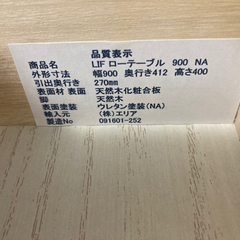 品質表示
商品名 LIF ローテーブル 900 NA
外形寸法 幅900 奥行き412 高さ400
引出奥行き 270mm
表面材 表面 天然木化粧合板
脚 天然木
表面塗装 ウレタン塗装(NA)
輸入元 (株)エリア
製造No 091601-252